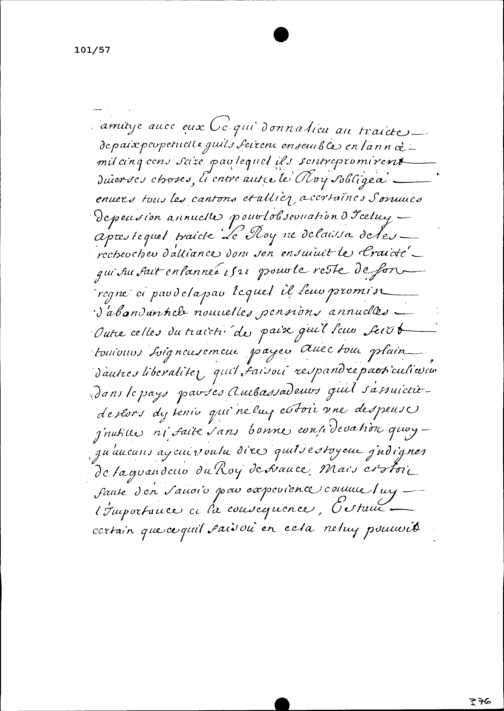 101/57
amitye avec eux Ce qui donna lieu au traicte
de paix perpetuelle quils feirent ensemble en lanné
mil cinq cens seize par lequel ils sentrepromirent
diverses choses, Et entre autre le Roy sobligea
envers tous les cantons et alliez a certaines Sommes
de pension annuelle pour lobservation d'Iceluy
apres lequel traicte Le Roy ne delaissa de les
rechercher d'alliance dont sen ensuivit le traicté
qui fut fait en lannée 1521 pour le reste de son
regne et par dela par lequel il leur promist
d'abondant de nouvelles pensions annuelles
Outre celles du traicté de paix quil leur feit
tousiours soigneusement payer avec tout plain
d'autres liberalitez quil faisoit respandre particulierement
dans le pays par ses Ambassadeurs quil s'assuictit
deslors dy tenir qui ne luy estoit une despense
jnutille ni faite sans bonne consideration quoy
qu'aucuns ayent voulu dire quils estoyent jndignes
de la grandeur du Roy de france, Mais cestoit
faute d'en sauoir par experience comme luy
l'Importance et la consequence, Estant
certain que ce quil faisoit en cela ne luy pouuoit
376